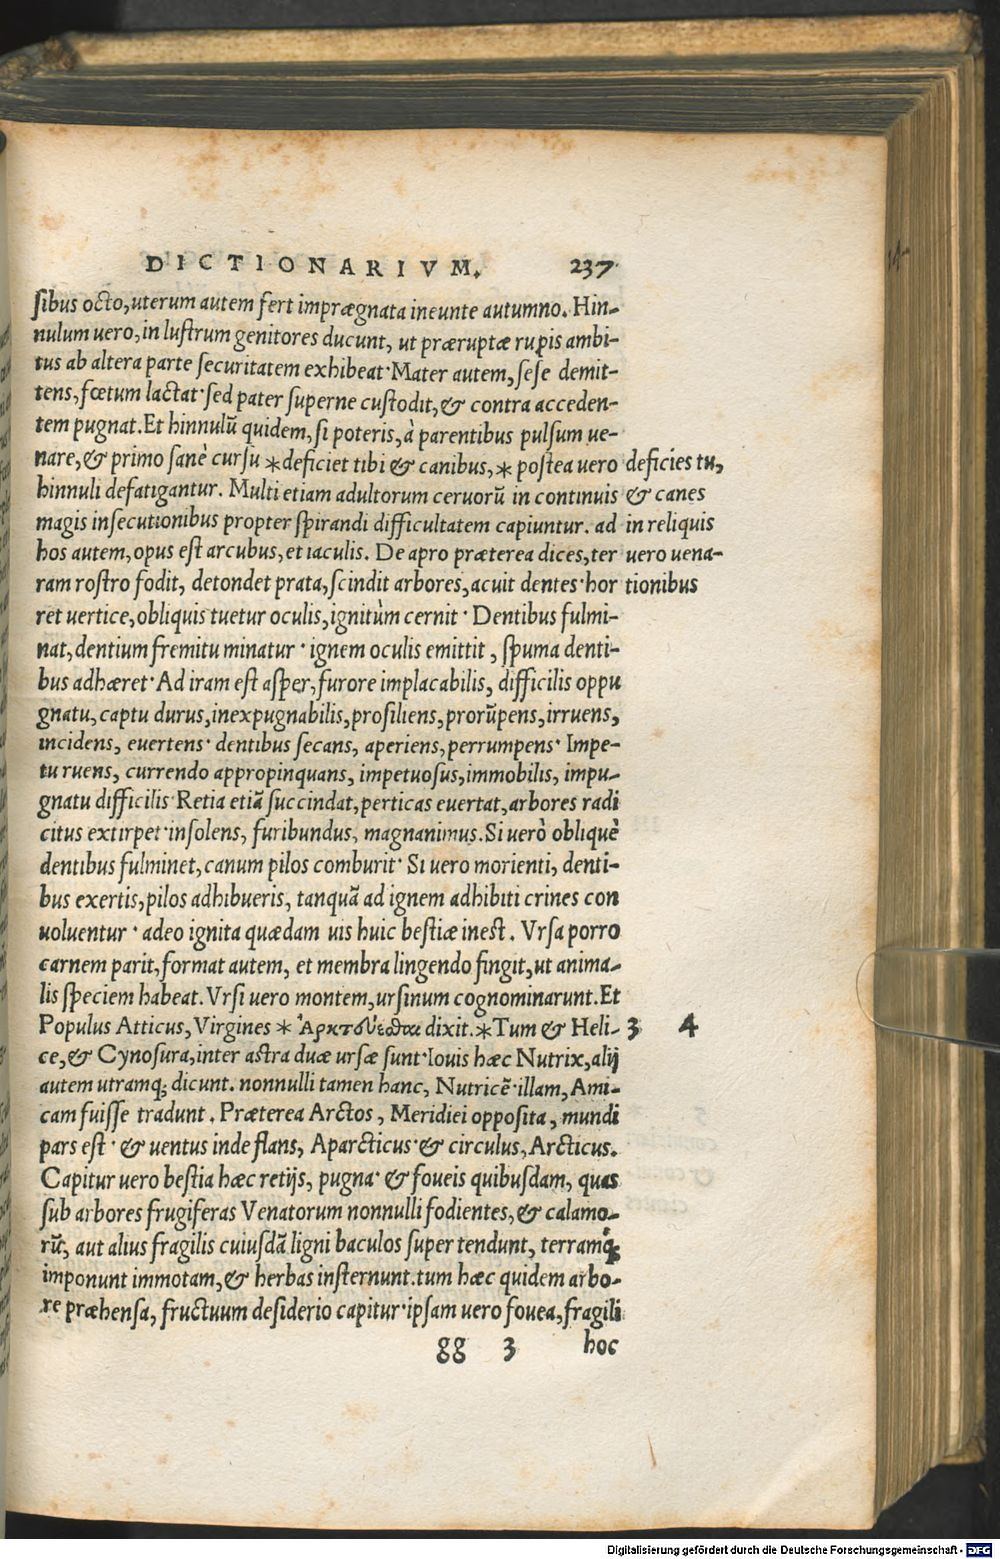 DICTIONARIVM. 237
sibus octo, uterum autem fert imprægnata ineunte autumno. Hin-
nulum uero, in lustrum genitores ducunt, ut præruptæ rupis ambi-
tus ab altera parte securitatem exhibeat· Mater autem, sese demit-
tens, fœtum lactat· sed pater superne custodit, & contra acceden-
tem pugnat. Et hinnulũ quidem, si poteris, à parentibus pulsum ue-
nare, & primo sanè cursu * deficiet tibi & canibus, * postea uero
hinnuli defatigantur. Multi etiam adultorum ceruorũ in continuis
magis insecutionibus propter spirandi difficultatem capiuntur. ad
hos autem, opus est arcubus, et iaculis. De apro præterea dices, ter
ram rostro fodit, detondet prata, scindit arbores, acuit dentes· hor
deficies tu,
& canes
in reliquis
uero uena-
tionibus
ret uertice, obliquis tuetur oculis, ignitùm cernit· Dentibus fulmi-
nat, dentium fremitu minatur· ignem oculis emittit, spuma denti-
bus adhæret· Ad iram est asper, furore implacabilis, difficilis oppu
gnatu, captu durus, inexpugnabilis, prosiliens, prorũpens, irruens,
incidens, euertens· dentibus secans, aperiens, perrumpens· Impe-
tu ruens, currendo appropinquans, impetuosus, immobilis, impu-
gnatu difficilis· Retia etiã succindat, perticas euertat, arbores radi
citus extirpet· insolens, furibundus, magnanimus. Si uerò obliquè
dentibus fulminet, canum pilos comburit· Si uero morienti, denti-
bus exertis, pilos adhibueris, tanquã ad ignem adhibiti crines con
uoluentur· adeo ignita quædam uis huic bestiæ inest. Vrsa porro
carnem parit, format autem, et membra lingendo fingit, ut anima-
lis speciem habeat. Vrsi uero montem, ursinum cognominarunt. Et
Populus Atticus, Virgines * Ἀρκτεύεσθαι dixit. * Tum & Heli- 3 4
ce, & Cynosura, inter astra duæ ursæ sunt· Iouis hæc Nutrix, alij
autem utramq; dicunt. nonnulli tamen hanc, Nutricẽ· illam, Ami-
cam fuisse tradunt. Præterea Arctos, Meridiei opposita, mundi
pars est· & uentus inde flans, Aparcticus· & circulus, Arcticus.
Capitur uero bestia hæc retijs, pugna· & foueis quibusdam, quas
sub arbores frugiferas Venatorum nonnulli fodientes, & calamo-
rũ, aut alius fragilis cuiusdã ligni baculos super tendunt, terramq;
imponunt immotam, & herbas insternunt. tum hæc quidem arbo-
re præhensa, fructuum desiderio capitur· ipsam uero fouea, fragili
gg 3 hoc
Digitalisierung gefördert durch die Deutsche Forschungsgemeinschaft - DFG